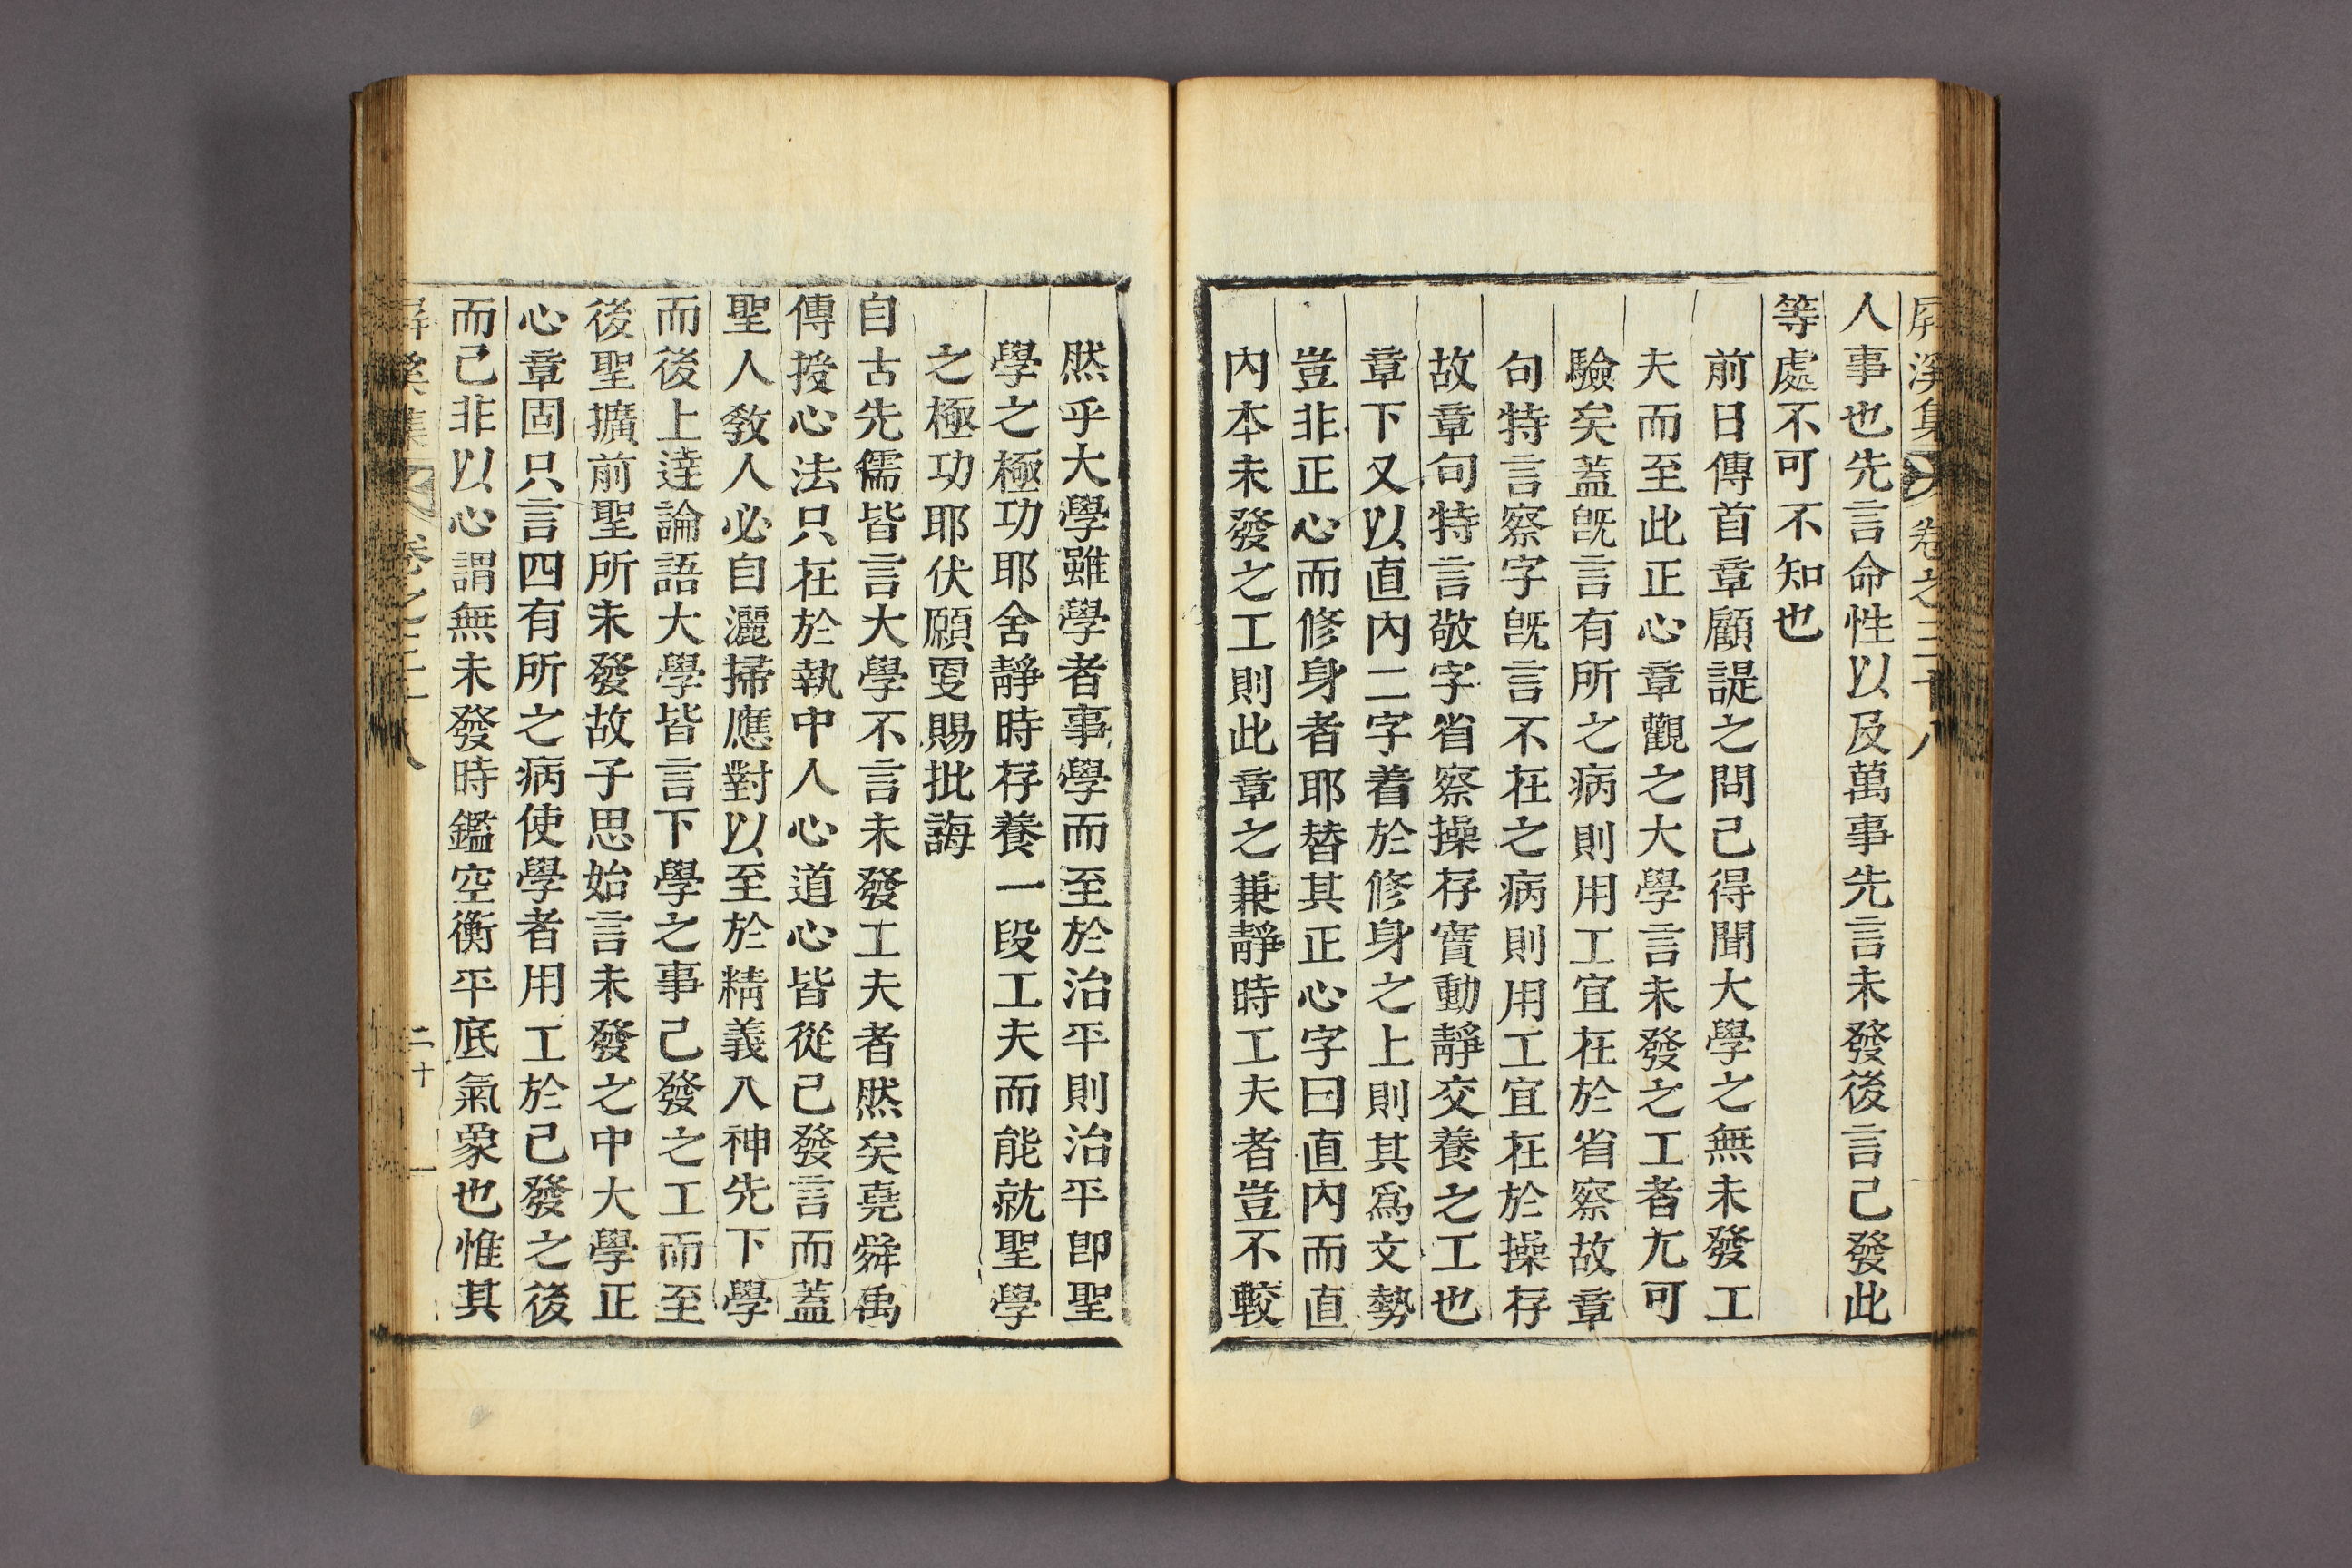 屛溪集 卷之二十八
人事也先言命性以及萬事先言未發後言已發此
等處不可不知也
前日傳首章顧諟之問已得聞大學之無未發工
夫而至此正心章觀之大學言未發之工者尤可
驗矣蓋旣言有所之病則用工宜在於省察故章
句特言察字旣言不在之病則用工宜在於操存
故章句特言敬字省察操存實動靜交養之工也
章下又以直內二字着於修身之上則其爲文勢
豈非正心而修身者耶替其正心字曰直內而直
內本未發之工則此章之兼靜時工夫者豈不較
然乎大學雖學者事學而至於治平則治平卽聖
學之極功耶舍靜時存養一段工夫而能就聖學
之極功耶伏願更賜批誨
自古先儒皆言大學不言未發工夫者然矣堯舜禹
傳授心法只在於執中人心道心皆從已發言而蓋
聖人敎人必自灑掃應對以至於精義入神先下學
而後上達論語大學皆言下學之事已發之工而至
後聖擴前聖所未發故子思始言未發之中大學正
心章固只言四有所之病使學者用工於已發之後
而已非以心謂無未發時鑑空衡平底氣象也惟其
屛溪集 卷之二十八 二十一